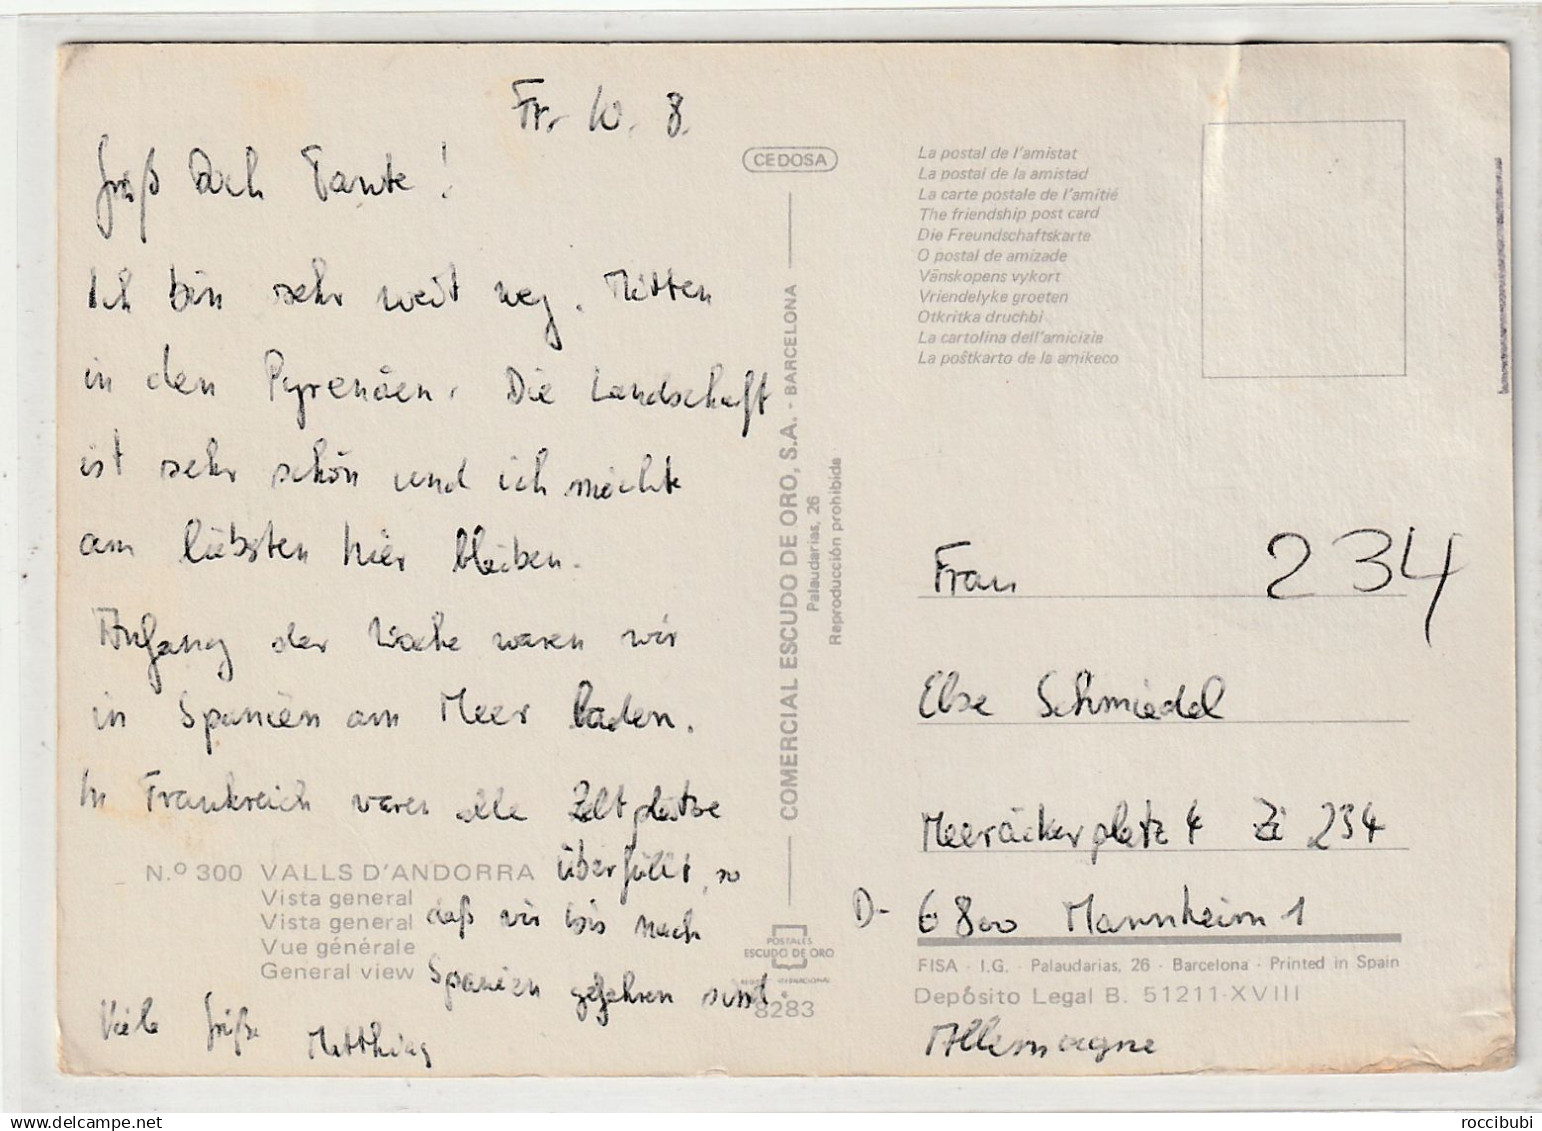 Fr. 10. 8.
Grüß Dich Tante!
Ich bin sehr weit weg. Mitten
in den Pyrenäen. Die Landschaft
ist sehr schön und ich möchte
am liebsten hier bleiben.
Anfang der Woche waren wir
in Spanien am Meer baden.
In Frankreich waren alle Zeltplätze
überfüllt, so
daß wir bis nach
Spanien gefahren sind.
Viele Grüße Matthias
N.º 300 VALLS D'ANDORRA
Vista general
Vista general
Vue générale
General view
CEDOSA
COMERCIAL ESCUDO DE ORO, S.A. - BARCELONA
Palaudarias, 26
Reproducción prohibida
POSTALES
ESCUDO DE ORO
8283
La postal de l'amistat
La postal de la amistad
La carte postale de l'amitié
The friendship post card
Die Freundschaftskarte
O postal de amizade
Vänskopens vykort
Vriendelyke groeten
Otkritka druchbi
La cartolina dell'amicizia
La poŝtkarto de la amikeco
Frau 234
Else Schmiedel
Meeräckerplatz 4 Zi 234
D- 6800 Mannheim 1
FISA - I.G. - Palaudarias, 26 - Barcelona - Printed in Spain
Depósito Legal B. 51211-XVIII
Allemagne
roccibubi